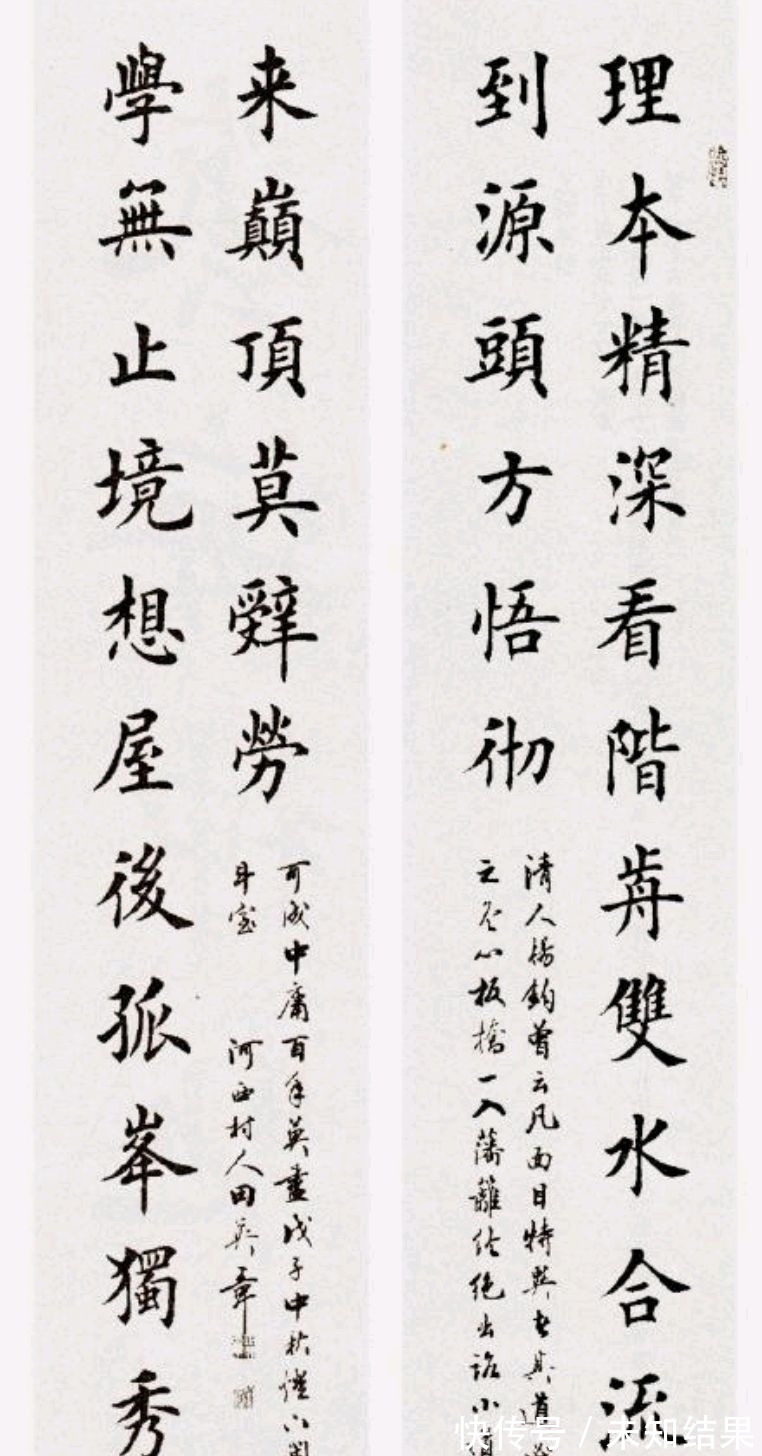 理本精深看階前雙水合流
到源頭方悟彻
清人楊鈞嘗云凡面目特異者其道
之冬心板橋一入藩籬終絶出路小
學無止境想屋後孤峯獨秀
来巔頂莫辤勞
可成中庸百年莫盡戊子中秋
斗室 河西村人田英章
快传号 / 未知结果